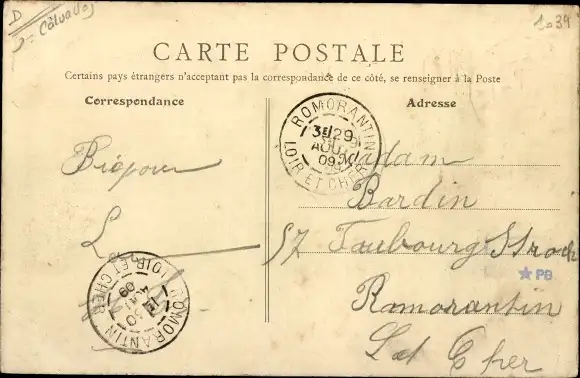 D
Calvados
1039
CARTE POSTALE
Certains pays étrangers n'acceptant pas la correspondance de ce côté, se renseigner à la Poste
Correspondance
Adresse
ROMORANTIN
3E/29
AOUT
09
LOIR ET CHER
Madam
Bardin
57 Faubourg St roch
PB
Romorantin
L et Cher
ROMORANTIN
30
09
LOIR ET CHER